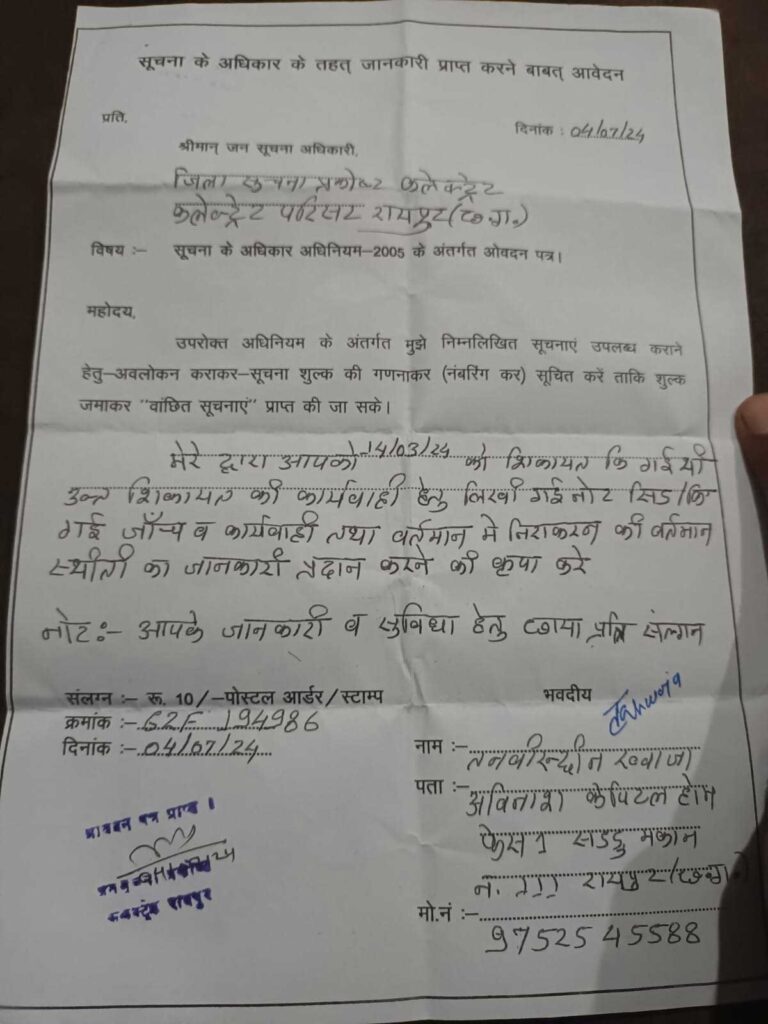 सूचना के अधिकार के तहत् जानकारी प्राप्त करने बाबत् आवेदन
प्रति,
दिनांक : 04/07/24
श्रीमान् जन सूचना अधिकारी,
जिला सुचना प्रकोष्ट कलेक्ट्रेट
कलेक्ट्रेट परिसर रायपुर (छ.ग.)
विषय :– सूचना के अधिकार अधिनियम–2005 के अंतर्गत ओवदन पत्र।
महोदय,
उपरोक्त अधिनियम के अंतर्गत मुझे निम्नलिखित सूचनाएं उपलब्ध कराने
हेतु–अवलोकन कराकर–सूचना शुल्क की गणनाकर (नंबरिंग कर) सूचित करें ताकि शुल्क
जमाकर "वांछित सूचनाएं" प्राप्त की जा सके।
मेरे द्वारा आपको 14/03/24 को शिकायत कि गई थी
उक्त शिकायत की कार्यवाही हेतु लिखी गई नोट सिड/कि
गई जाँच व कार्यवाही तथा वर्तमान मे निराकरन की वर्तमान
स्थीती का जानकारी प्रदान करने की कृपा करे
नोट:- आपके जानकारी व सुविधा हेतु छाया प्रति संलग्न
संलग्न :– रू. 10/–पोस्टल आर्डर/स्टाम्प
भवदीय
क्रमांक :– 62F 194986
दिनांक :– 04/07/24
नाम :– तनवीरुद्दीन ख्वाजा
पता :– अविनाश केपिटल होम
फेस 1 सडडु मकान
न. 111 रायपुर (छ.ग.)
मो.नं :–
97525 45588
आवेदन पत्र प्राप्त।
कलेक्ट्रेट रायपुर